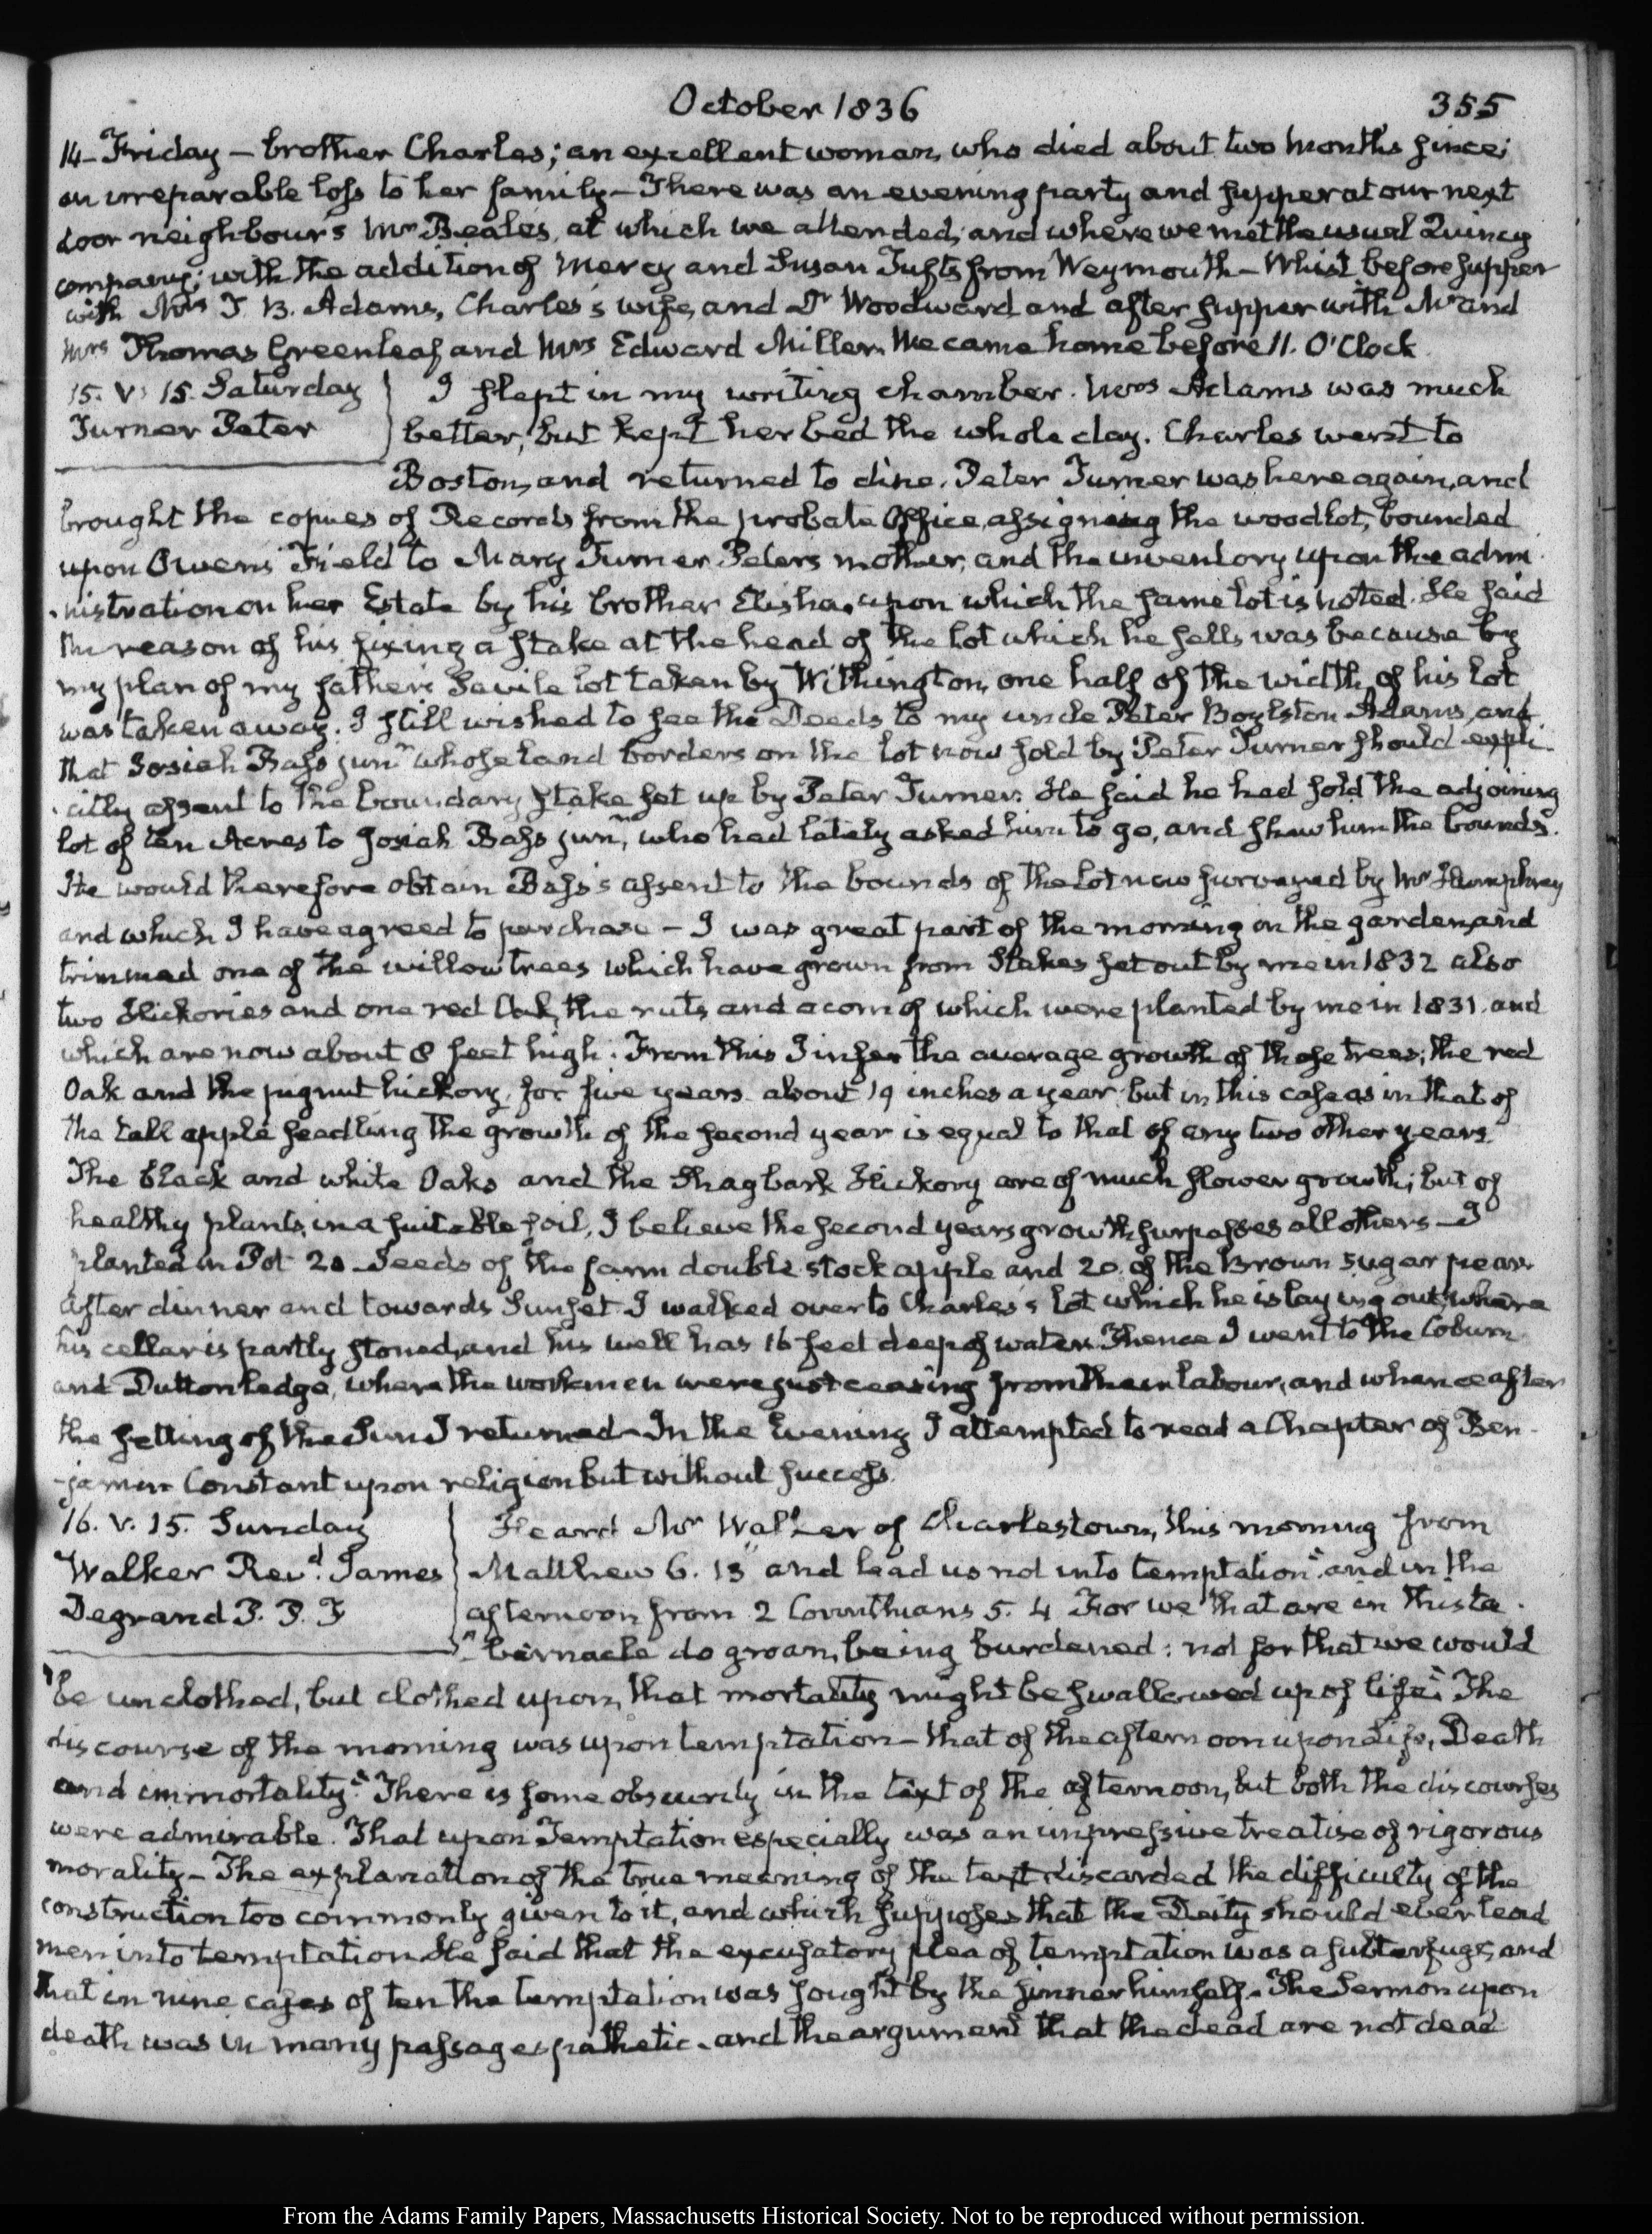 October 1836 355
14 – Friday – brother Charles; an excellent woman, who died about two months since;
an irreparable loss to her family – There was an evening party and supper at our next
door neighbour's Mr Beale's, at which we attended, and where we met the usual Quincy
company; with the addition of Mercy and Susan Tufts from Weymouth – Whist before supper
with Mrs T. B. Adams, Charles's wife, and Dr Woodward, and after supper with Mr and
Mrs Thomas Greenleaf, and Mrs Edward Miller. We came home before 11. O'Clock.
15. V. 15. Saturday I slept in my writing chamber. Mrs Adams was much
Turner Peter better, but kept her bed the whole day. Charles went to
Boston, and returned to dine. Peter Turner was here again, and
brought the copies of Records from the probate Office, assigning the woodlot, bounded
upon Owens' Field to Mary Turner Peter's mother, and the inventory upon the admi-
-nistration on her Estate by his brother Elisha, upon which the same lot is noted. He said
the reason of his fixing a stake at the head of the lot which he sells was because by
my plan of my father's Savile lot taken by Withington, one half of the width of his lot
was taken away. I still wished to see the Deeds to my uncle Peter Boylston Adams, and
that Josiah Bass junr whose land borders on the lot now sold by Peter Turner should expli-
-citly assent to the boundary stake set up by Peter Turner. He said he had sold the adjoining
lot of ten Acres to Josiah Bass junr, who had lately asked him to go, and shew him the bounds.
He would therefore obtain Bass's assent to the bounds of the lot now surveyed by Mr Humphrey
and which I have agreed to purchase – I was great part of the morning in the garden, and
trimmed one of the willow trees which have grown from Stakes set out by me in 1832 also
two Hickories and one red Oak, the nuts and acorn of which were planted by me in 1831. and
which are now about 8 feet high. From this I infer the average growth of those trees; the red
Oak and the pignut hickory, for five years about 19 inches a year but in this case as in that of
the tall apple seedling the growth of the second year is equal to that of any two other years.
The black and white Oaks and the Shagbark Hickory are of much slower growth; but of
healthy plants, in a suitable soil, I believe the second years growth surpasses all others – I
planted in Pot 20 Seeds of the farm double stock apple and 20 of the Brown sugar pear
After dinner and towards Sunset I walked over to Charles's lot which he is laying out, where
his cellar is partly stoned, and his well has 16 feet deep of water. Thence I went to the Coburn
and Dutton ledge, where the workmen were just ceasing from their labour, and whence after
the setting of the Sun I returned – In the Evening I attempted to read a Chapter of Ben-
-jamin Constant upon religion but without success.
16. V. 15. Sunday Heard Mr Walker of Charlestown, this morning from
Walker Revd. James Matthew 6. 13 "and lead us not into temptation" and in the
Degrand P. P. F afternoon from 2 Corinthians 5. 4 For we that are in this ta-
"bernacle do groan, being burdened: not for that we would
"be unclothed, but clothed upon, that mortality might be swallowed up of life." The
discourse of the morning was upon temptation – that of the afternoon upon Life, Death
and immortality. There is some obscurity in the text of the afternoon, but both the discourses
were admirable. That upon Temptation especially was an impressive treatise of rigorous
morality – The explanation of the true meaning of the text discarded the difficulty of the
construction too commonly given to it, and which supposes that the Deity should ever lead
men into temptation. He said that the excusatory plea of temptation was a subterfuge, and
that in nine cases of ten the temptation was sought by the sinner himself. The Sermon upon
death was in many passages pathetic, and the argument that the dead are not dead
From the Adams Family Papers, Massachusetts Historical Society. Not to be reproduced without permission.